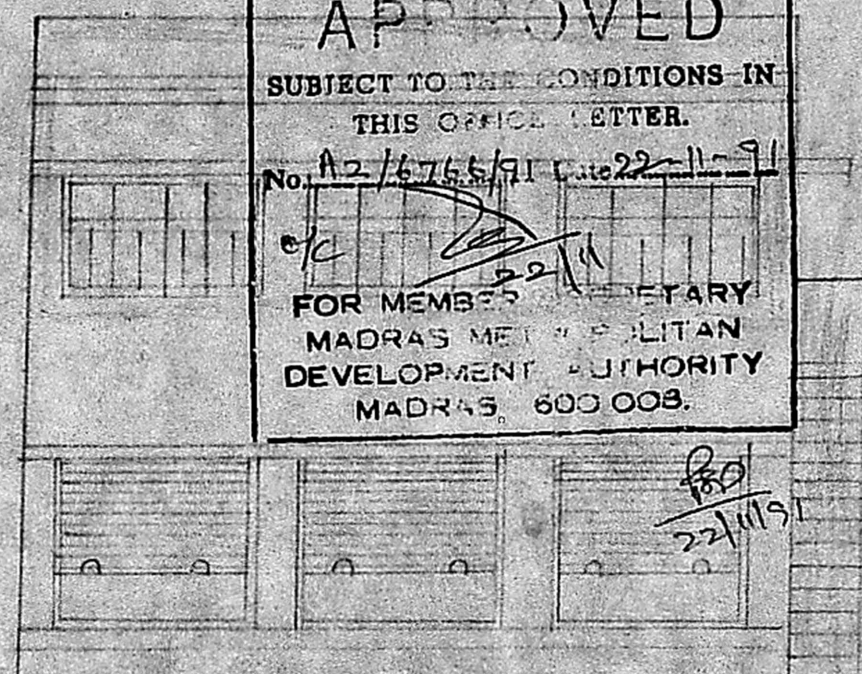 APPROVED
SUBJECT TO THE CONDITIONS IN
THIS OFFICE LETTER.
No. A2/6766/91 Date 22-11-91
22/11
FOR MEMBER SECRETARY
MADRAS METROPOLITAN
DEVELOPMENT AUTHORITY
MADRAS, 600 008.
22/11/91